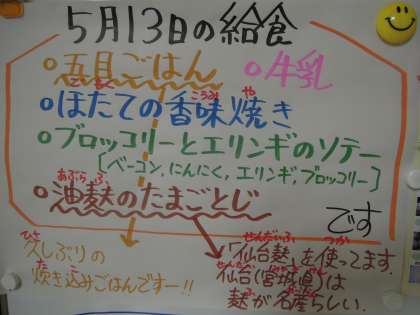 5月13日の給食
○五目ごはん ○牛乳
○ほたての香味焼き
○ブロッコリーとエリンギのソテー
[ベーコン,にんにく,エリンギ,ブロッコリー]
○油麩のたまごとじ
です
久しぶりの
炊き込みごはんですー!!
「仙台麩」を使ってます.
仙台(宮城直)は
麩が名産らしい.